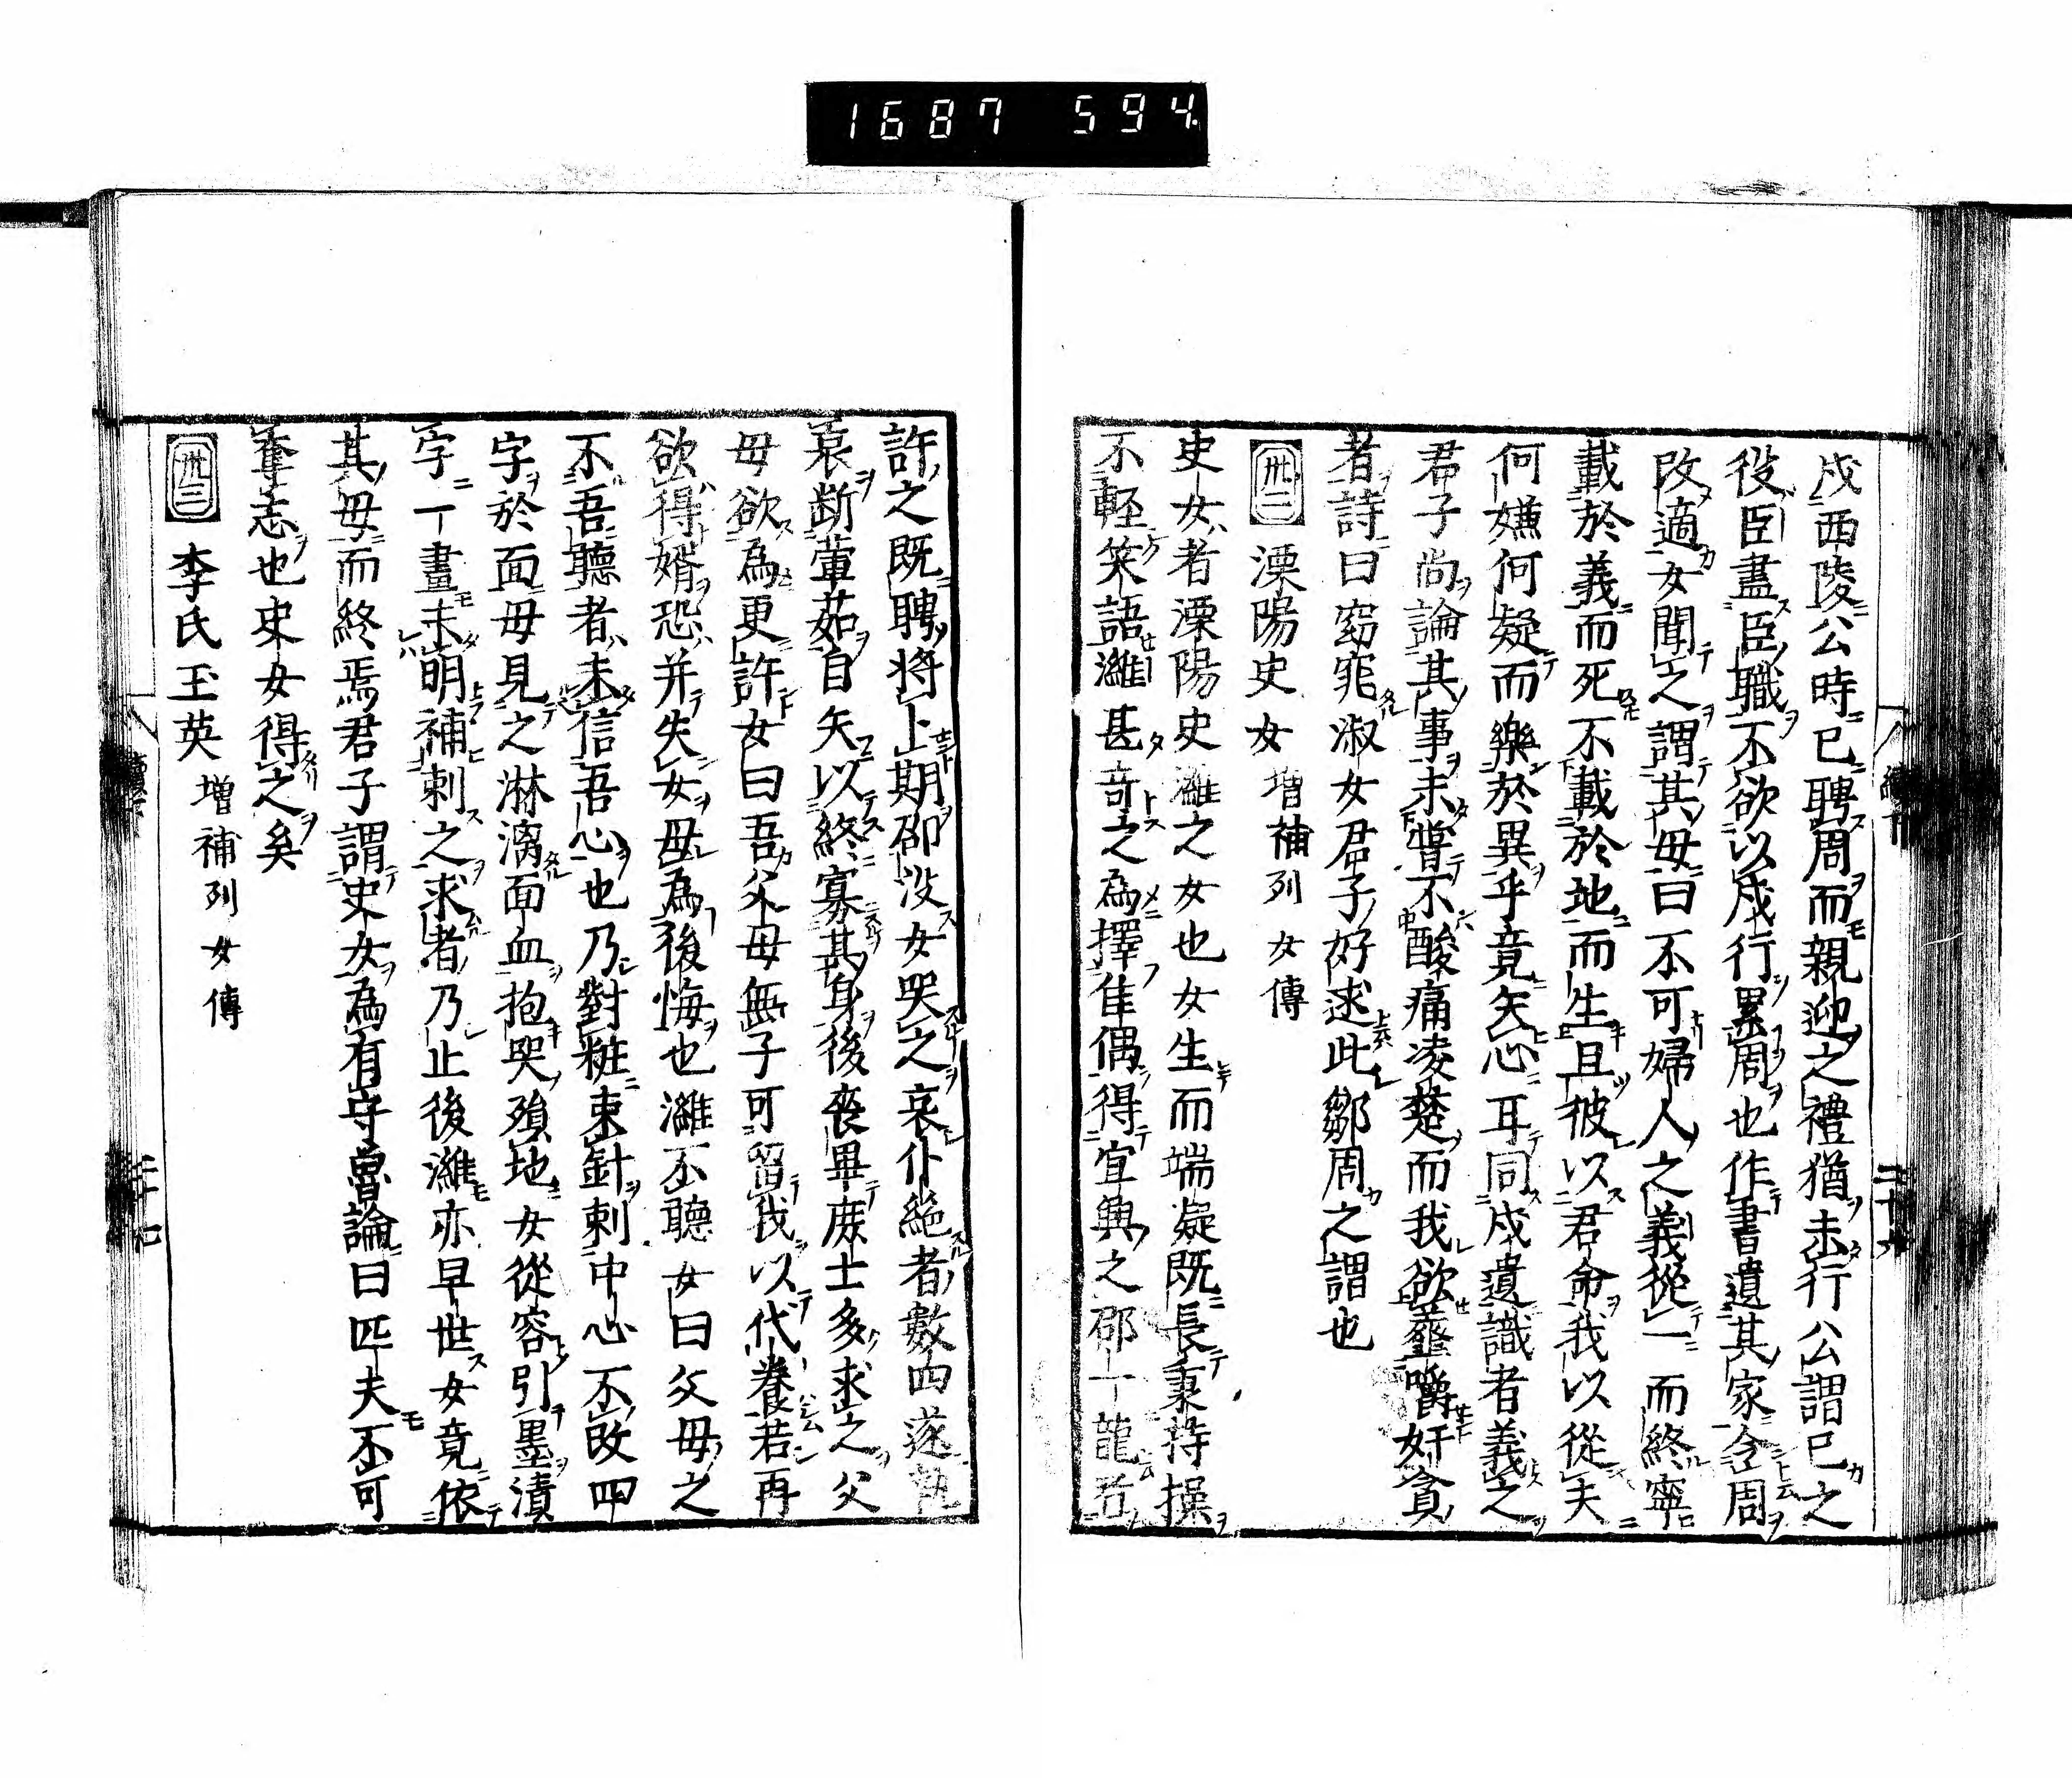 1687 594
戍西陵公時已聘周而親迎之禮猶未行公謂已之
役臣盡臣職不欲以戍行累周也作書遺其家令周
改適女聞之謂其母曰不可婦人之義從一而終寧
載於義而死不載於地而生且彼以君命我以從夫
何嫌何疑而樂於異乎竟矢心耳同戍遺識者義之
君子尚論其事未嘗不酸痛凌楚而我欲虀嚼奸貪
者詩曰窈窕淑女君子好逑此鄒周之謂也
卅二 溧陽史女 增補列女傳
史女者溧陽史濰之女也女生而端凝既長秉持操
不輕笑語濰甚奇之為擇佳偶得宜興之邵一龍者
許之既聘將卜期邵沒女哭之哀仆絕者數四遂
哀斷葷茹自矢以終寡其身後喪畢族士多求之父
母欲為更許女曰吾父母無子可留我以代養若再
欲得婿恐并失女母為後悔也濰不聽女曰父母之
不吾聽者未信吾心也乃對粧束針刺中心不改四
字於面母見之淋漓面血抱哭殞地女從容引墨漬
字一畫未明補刺之求者乃止後濰亦早世女竟依
其母而終焉君子謂史女為有守魯論曰匹夫不可
奪志也史女得之矣
卅三 李氏玉英 增補列女傳